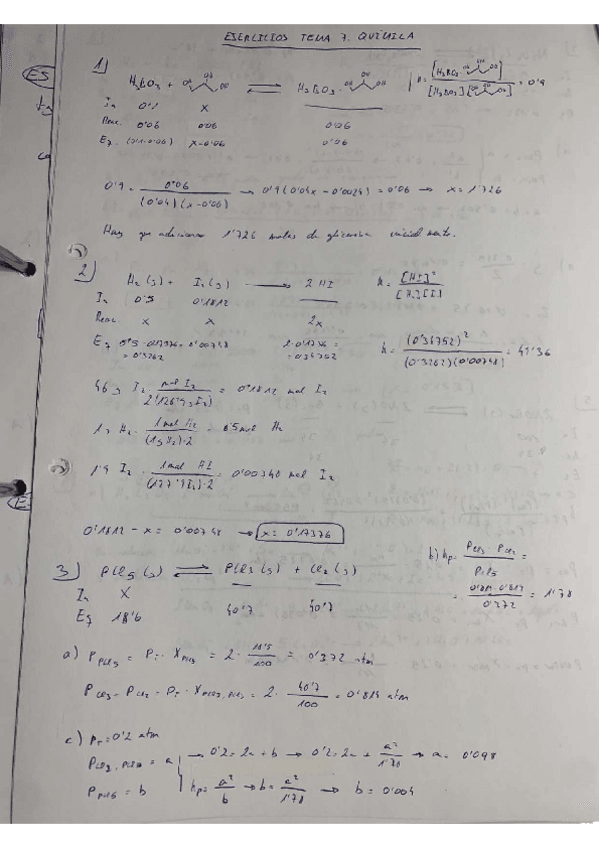 EJERCICIOS TEMA 7. QUÍMICA
1) H₃BO₃ + ⇌ H₃BO₃ · | K = [H₃BO₃ · ] / [H₃BO₃][ ] = 0'9
In 0'1 x
Reac. 0'06 0'06 0'06
Eq. (0'1-0'06) x-0'06 0'06
0'9 = 0'06 / (0'04)(x-0'06) → 0'9(0'04x - 0'0024) = 0'06 → x = 1'726
Hay que adicionar 1'726 moles de glicerina inicialmente.
2) H₂(g) + I₂(g) → 2HI K = [HI]² / [H₂][I]
In 0'5 0'1812
Reac. x x 2x
Eq 0'5-0'17376 = 0'3262 0'00748 2·0'1736 = 0'34752 K = (0'34752)² / (0'3262)(0'00748) = 49'36
46 g I₂ · mol I₂ / 2(126'9 g I₂) = 0'1812 mol I₂
1 g H₂ · 1 mol H₂ / (1 g H₂)·2 = 0'5 mol H₂
1'9 I₂ · 1 mol HI / (127'9 I₂)·2 = 0'00748 mol I₂
0'1812 - x = 0'00748 → x = 0'17376
3) PCl₅(g) ⇌ PCl₃(g) + Cl₂(g)
In X
Eq 18'6 40'7 40'7
b) Kp = P PCl₃ · P Cl₂ / P PCl₅ =
= 0'814 · 0'814 / 0'372 = 1'78
a) P PCl₅ = P T · X PCl₅ = 2 · / 100 = 0'372 atm
P PCl₃ = P Cl₂ = P T · X PCl₃, = 2 · 40'7 / 100 = 0'814 atm
c) P T = 0'2 atm
P Cl₂, PCl₃ = a → 0'2 = 2a + b → 0'2 = 2a + a² / 1'78 → a = 0'098
P PCl₅ = b Kp = a² / b → b = a² / 1'78 → b = 0'004